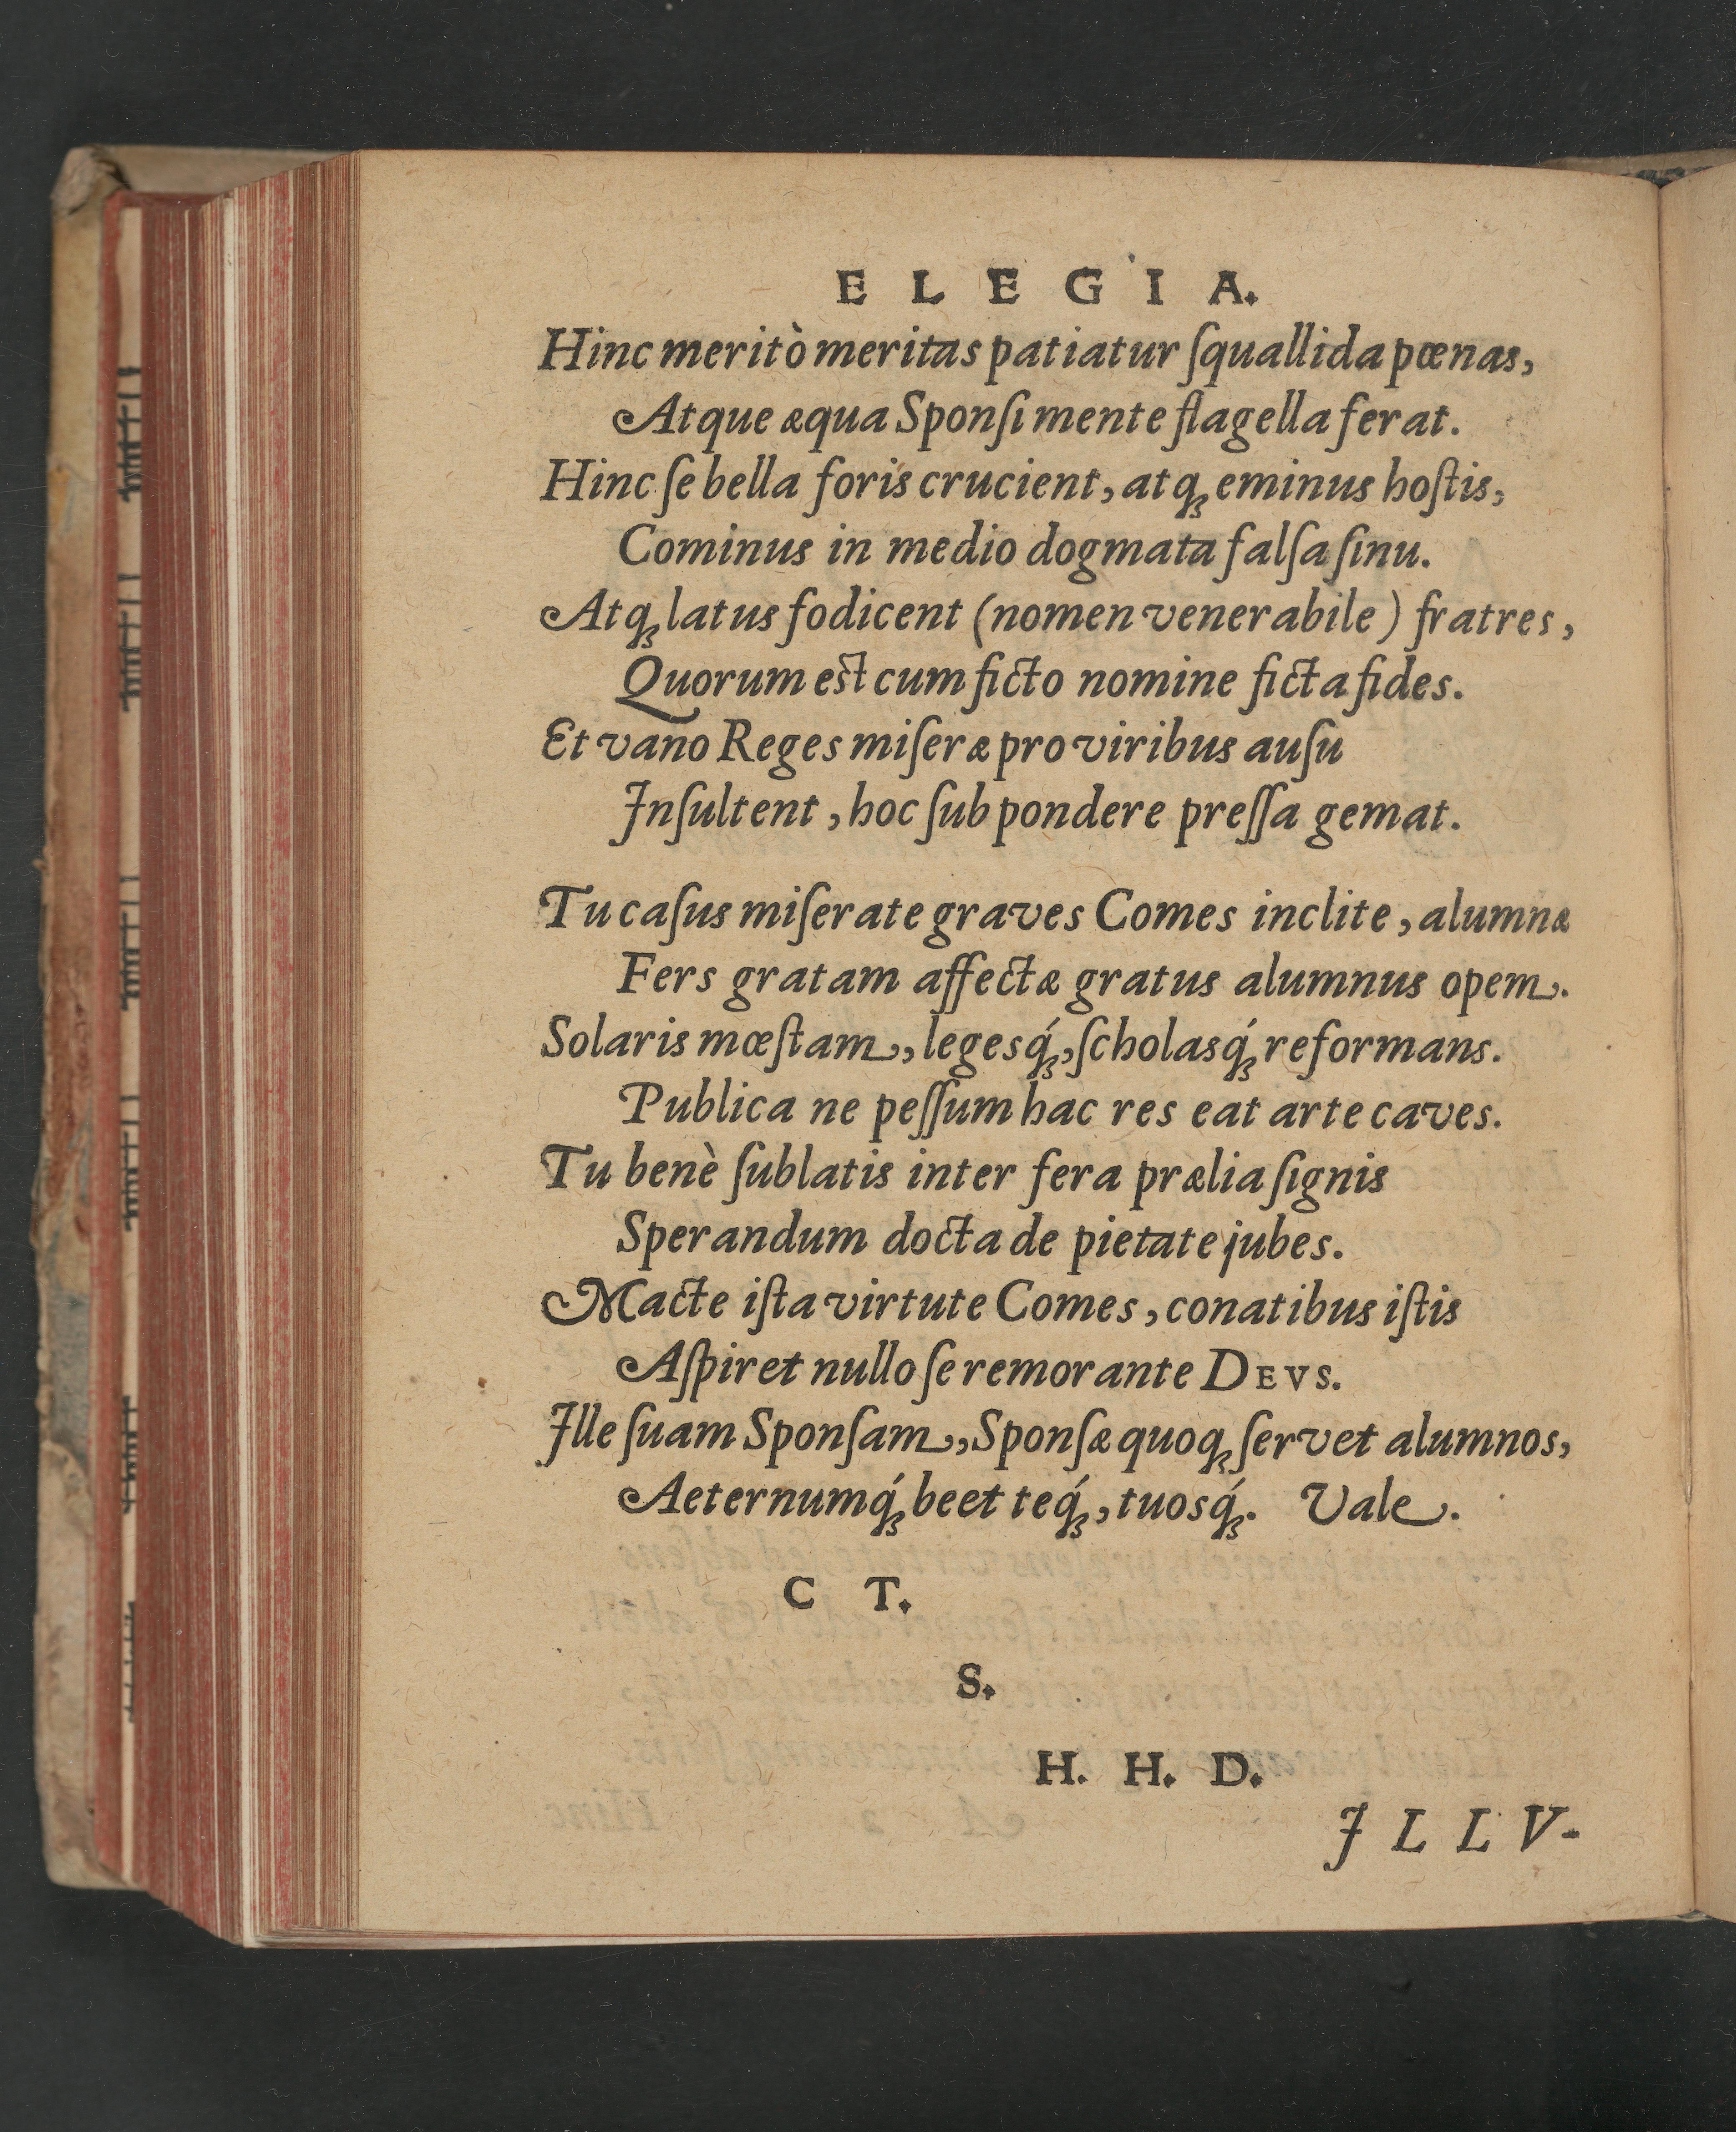 ELEGIA.
Hinc meritò meritas patiatur ſquallida pœnas,
Atque æqua Sponſi mente flagella ferat.
Hinc ſe bella foris crucient, atq; eminus hoſtis,
Cominus in medio dogmata falſa ſinu.
Atq; latus fodicent (nomen venerabile) fratres,
Quorum est cum ficto nomine ficta fides.
Et vano Reges miſeræ pro viribus auſu
Inſultent, hoc ſub pondere preſſa gemat.
Tu caſus miſerate graves Comes inclite, alumnæ
Fers gratam affectæ gratus alumnus opem.
Solaris mœſtam, legesq́;, ſcholasq́; reformans.
Publica ne peſſum hac res eat arte caves.
Tu benè ſublatis inter fera prælia ſignis
Sperandum docta de pietate jubes.
Macte iſta virtute Comes, conatibus iſtis
Aſpiret nullo ſe remorante DEVS.
Ille ſuam Sponſam, Sponſæ quoq; ſervet alumnos,
Aeternumq́; beet teq́;, tuosq́;. Vale.
C T.
S.
H. H. D.
ILLV-